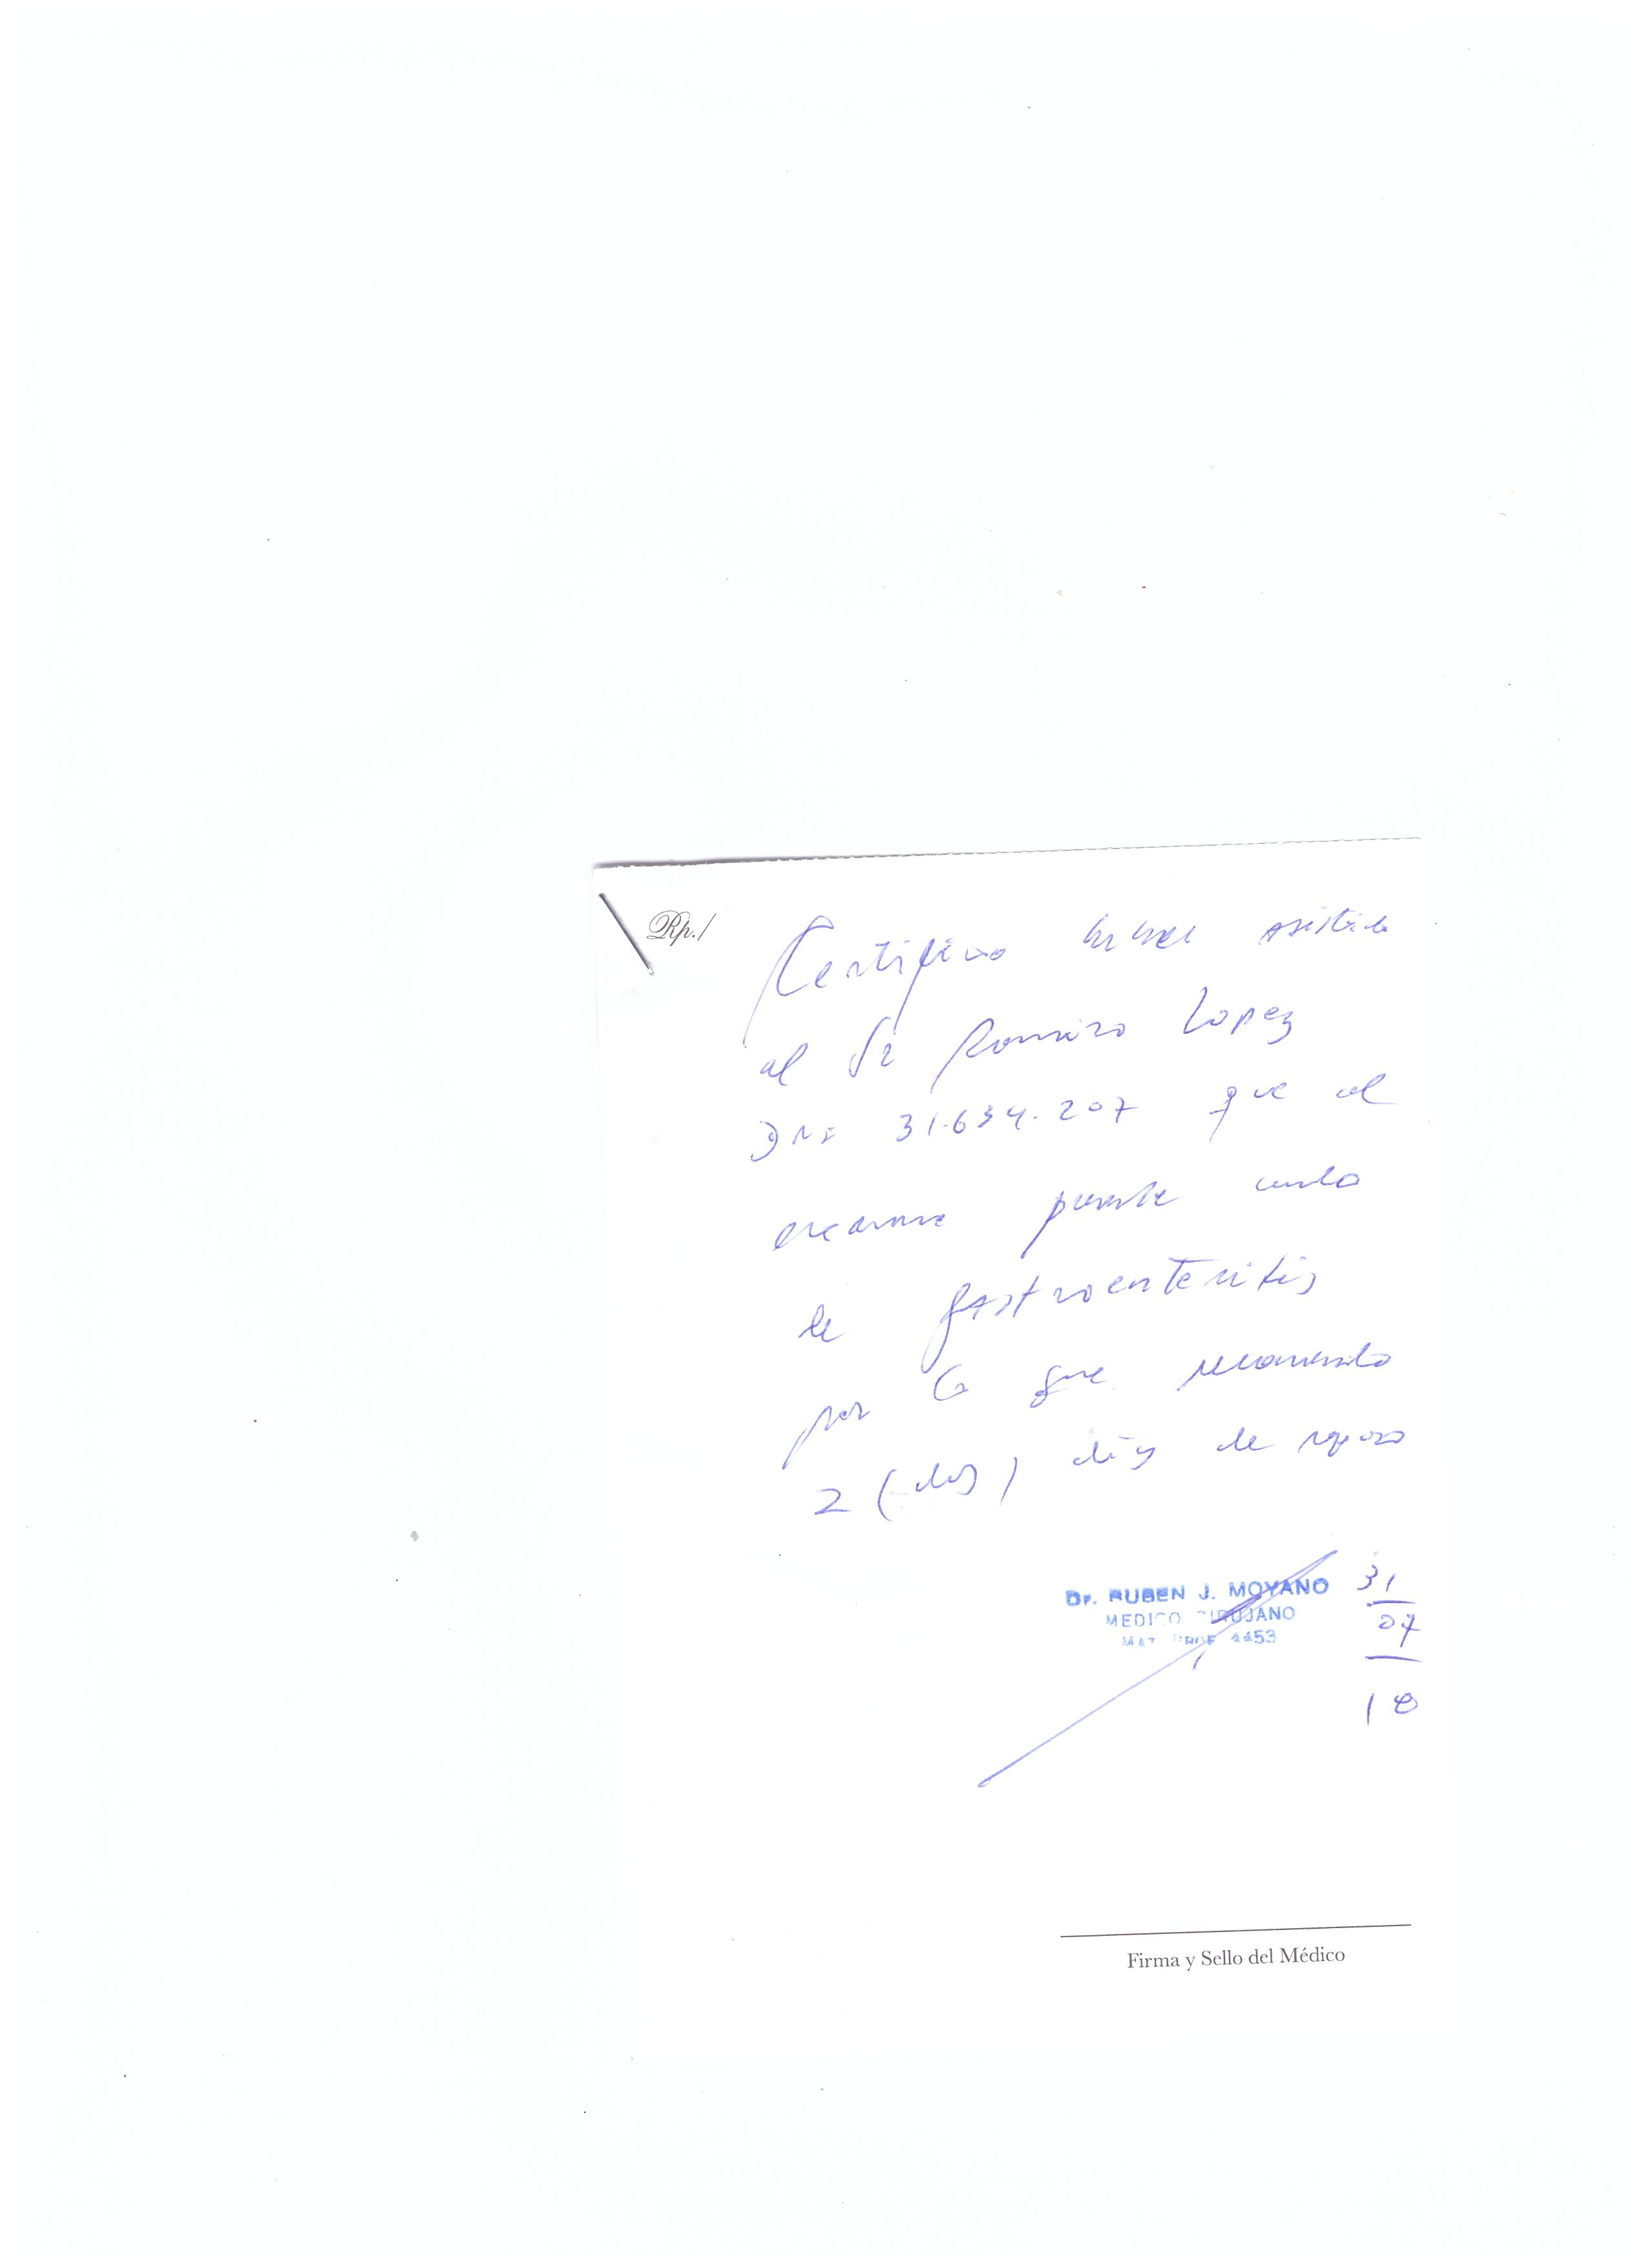 Rp./
Certifico haber asistido
al Sr Ramiro Lopez
DNI 31.634.207 que al
examen presenta cuadro
de gastroenteritis
por lo que recomiendo
2 (dos) días de reposo
Dr. RUBEN J. MOYANO
MEDICO CIRUJANO
MAT. PROF. 4453
31
07
18
Firma y Sello del Médico